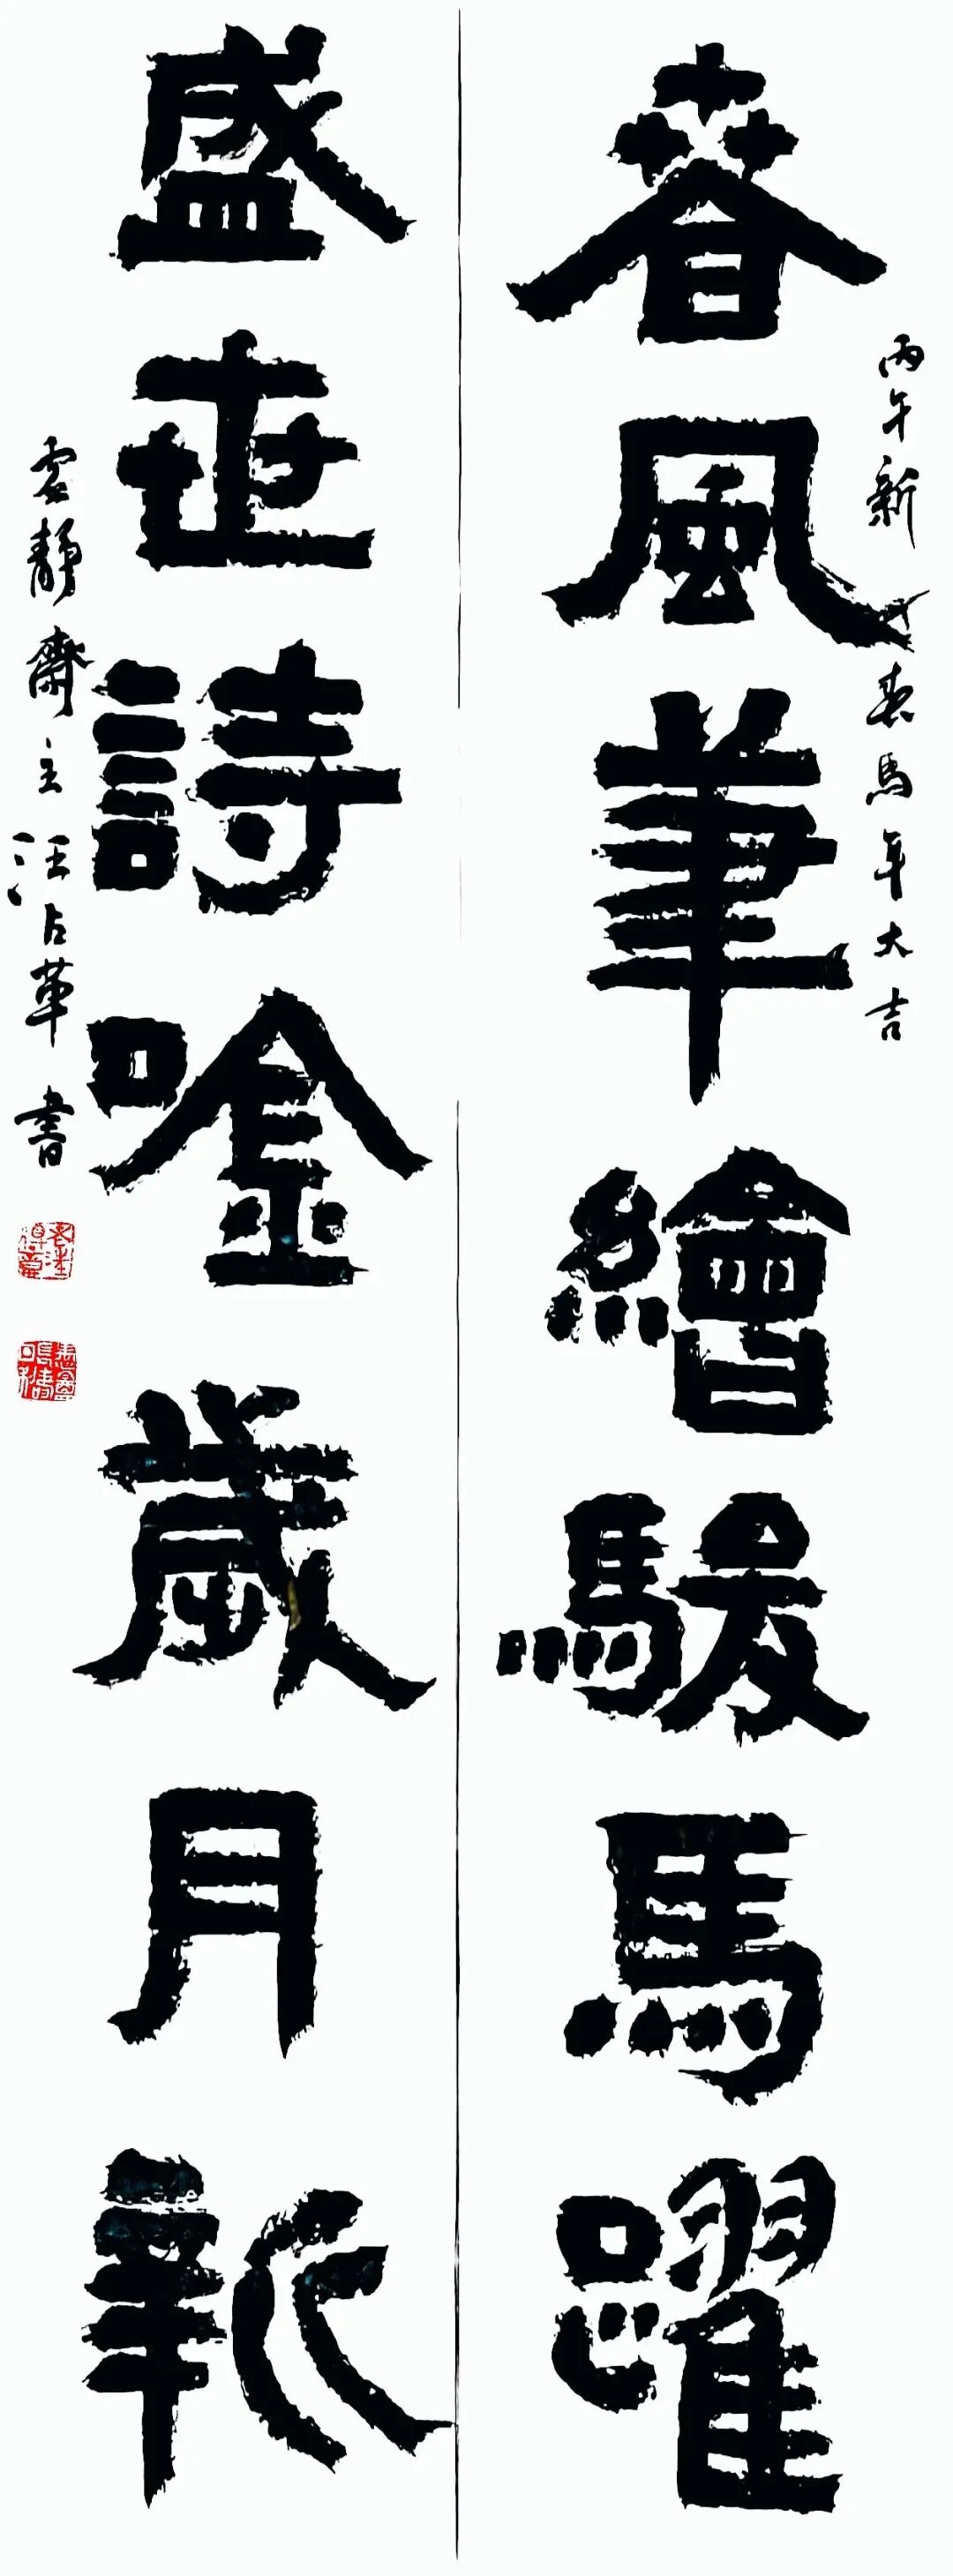 丙午新春馬年大吉
春風筆繪駿馬躍
盛世詩唫歲月新
虛靜齋主汪占革書